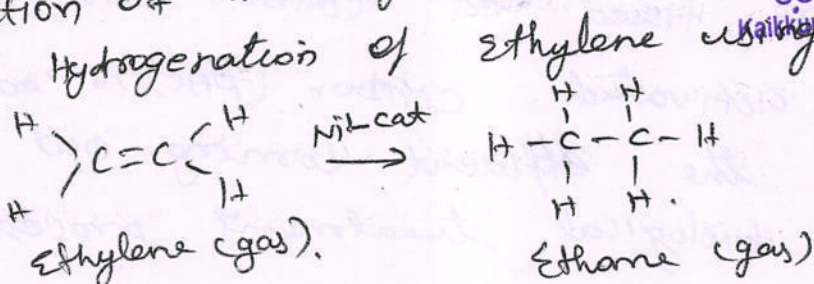 Hydrogenation of Ethylene using
H H H H
C=C Ni-cat H C-C-H
H H H H
Ethylene (gas). Ethane (gas)